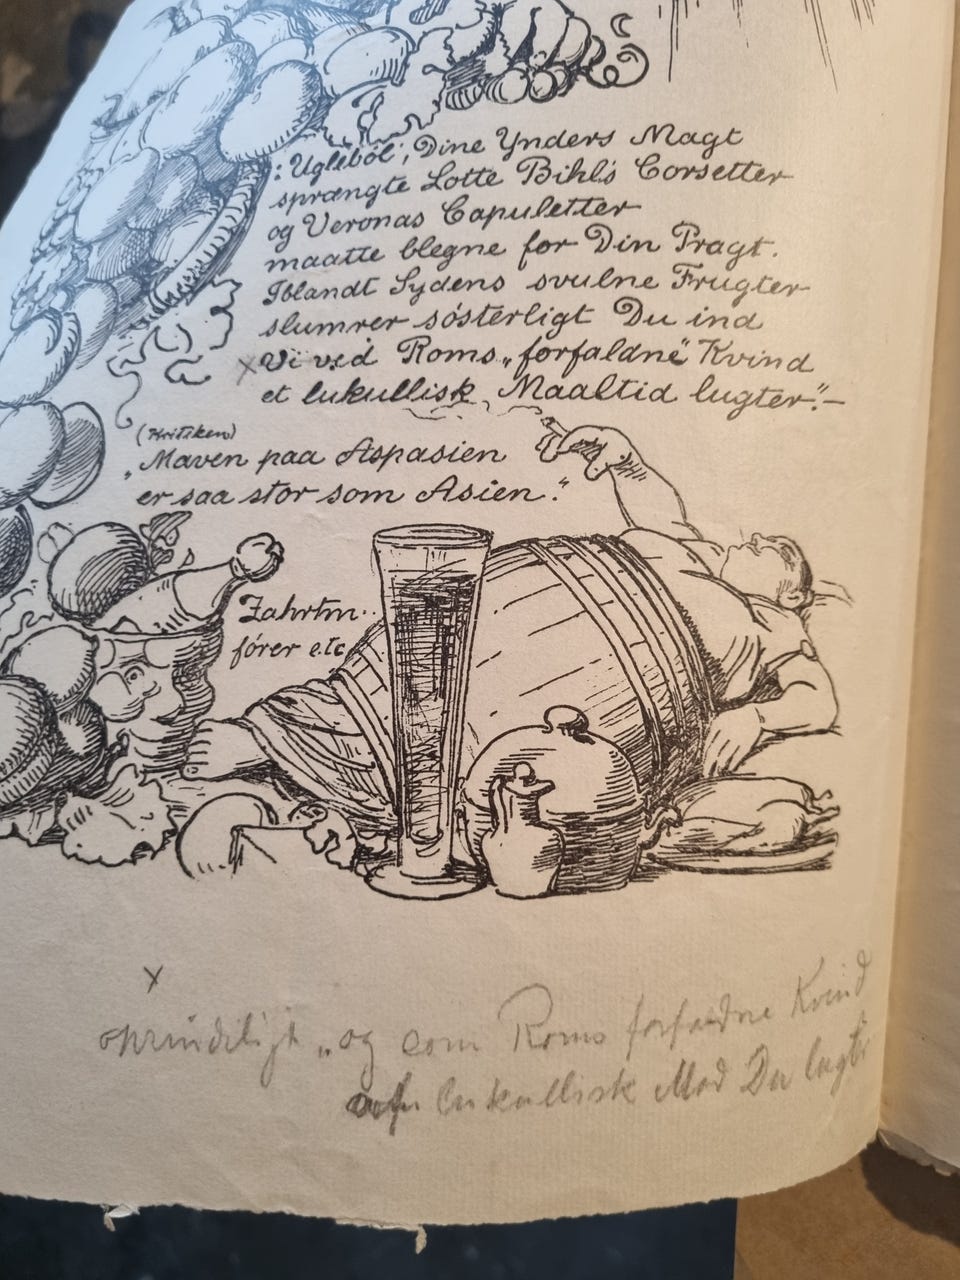 : "Uglebol", Dine Ynders Magt
sprængte Lotte Bihl's Corsetter
og Veronas Capuletter
maatte blegne for Din Pragt.
Iblandt Sydens svulne Frugter
slumrer sösterligt Du ind
x Vi ved Roms "forfaldne" Kvind
et lukullisk Maaltid lugter." —
(Kritiken)
"Maven paa Aspasien
er saa stor som Asien."
Zahrtm..
förer etc
x
oprindeligt "og som Roms forfaldne Kvind
lukullisk Mad Du lugter